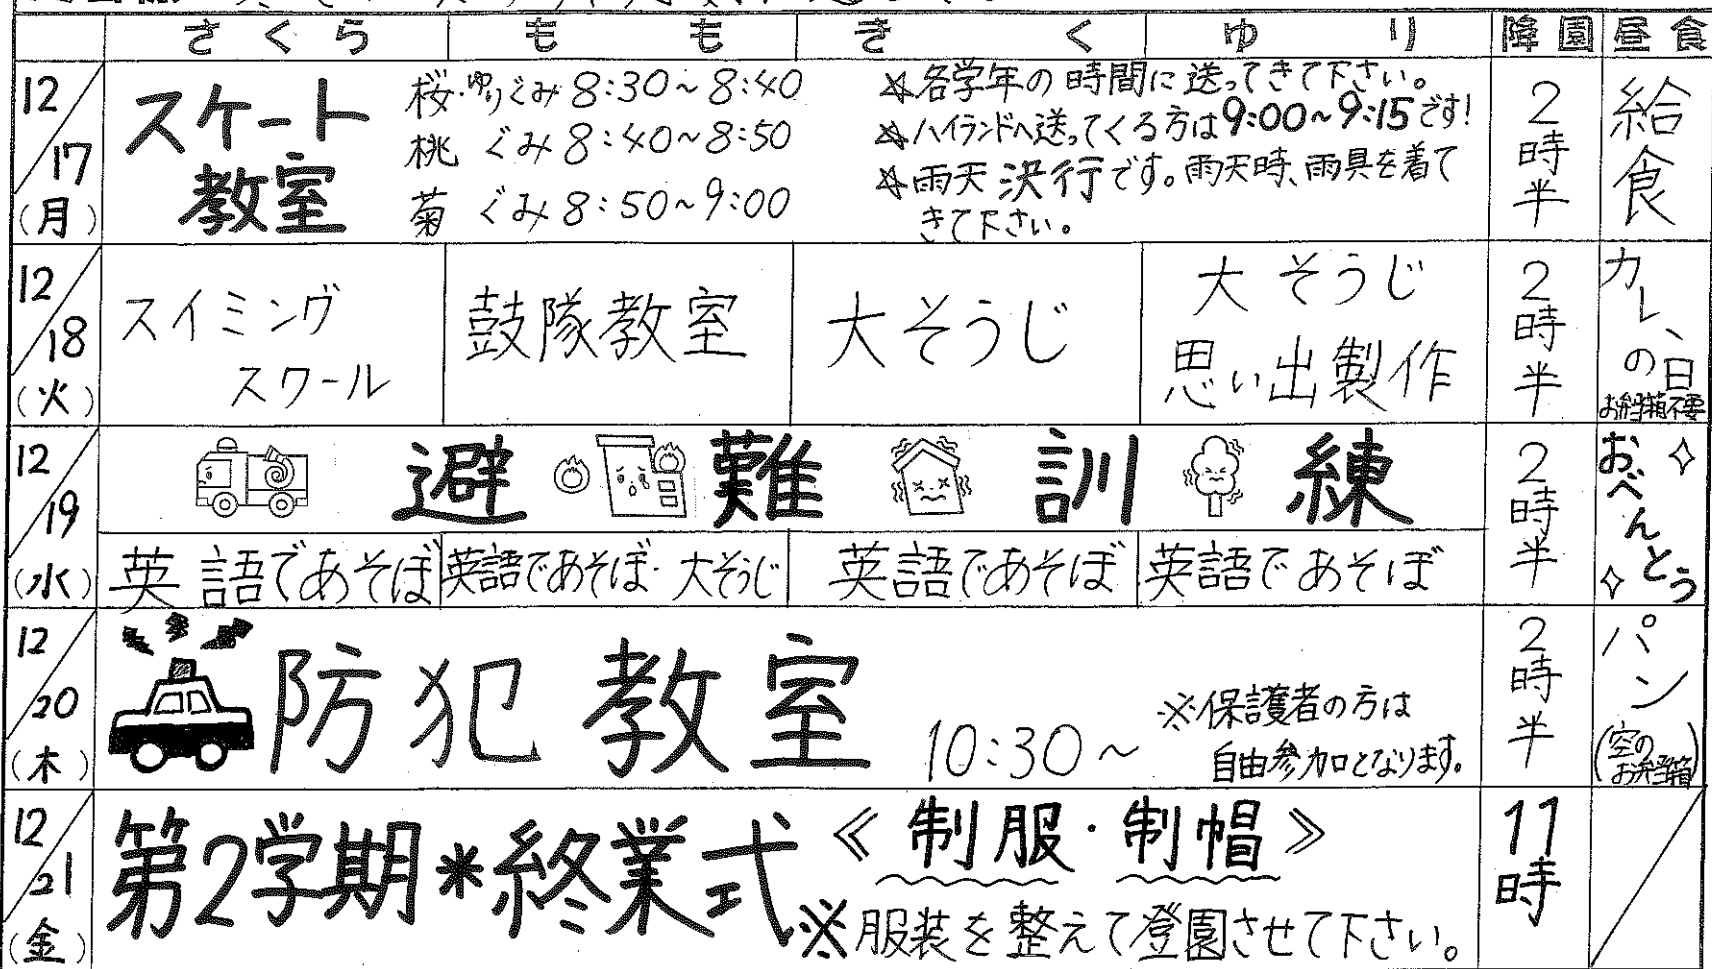 さくら もも きく ゆり 降園 昼食
12/17(月)
スケート教室
桜・ゆりぐみ 8:30~8:40
桃ぐみ 8:40~8:50
菊ぐみ 8:50~9:00
☆各学年の時間に送ってきて下さい。
☆ハイランドへ送ってくる方は9:00~9:15です!
☆雨天決行です。雨天時、雨具を着て
きて下さい。
2時半
給食
12/18(火)
スイミング
スクール
鼓隊教室
大そうじ
大そうじ
思い出製作
2時半
カレーの日
お弁当箱不要
12/19(水)
避難訓練
英語であそぼ
英語であそぼ・大そうじ
英語であそぼ
英語であそぼ
2時半
おべんとう
12/20(木)
防犯教室 10:30~
※保護者の方は
自由参加となります。
2時半
パン
(空のお弁当箱)
12/21(金)
第2学期*終業式
《制服・制帽》
※服装を整えて登園させて下さい。
11時